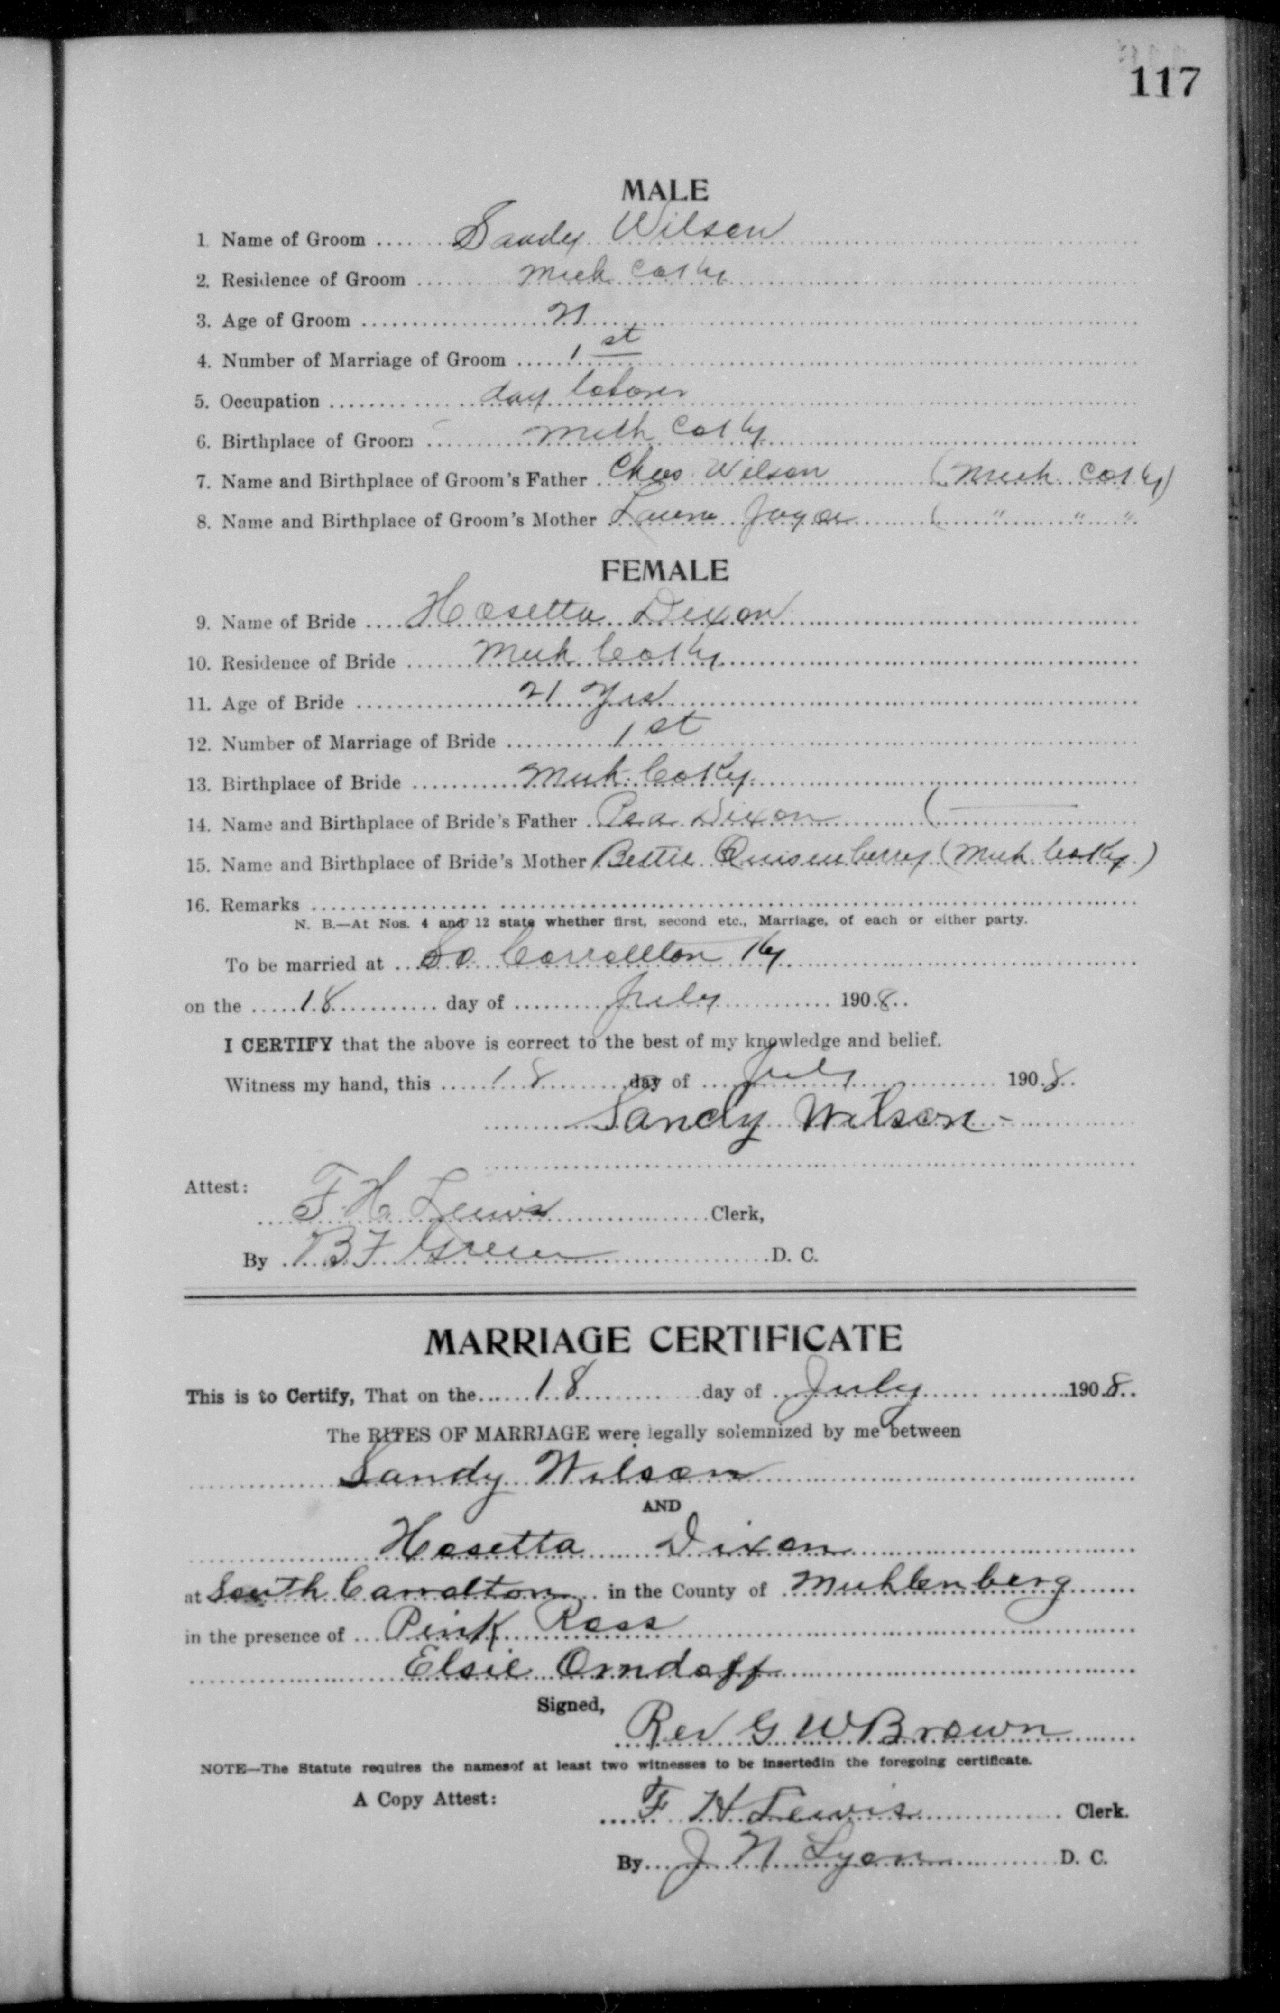 117
MALE
1. Name of Groom Sandy Wilson
2. Residence of Groom Muh Co Ky
3. Age of Groom 21
4. Number of Marriage of Groom 1st
5. Occupation day laborer
6. Birthplace of Groom Muh Co Ky
7. Name and Birthplace of Groom's Father Chas Wilson (Muh Co Ky)
8. Name and Birthplace of Groom's Mother Laura ( " " "
FEMALE
9. Name of Bride Hosetta Dixon
10. Residence of Bride Muh Co Ky
11. Age of Bride 21 Yrs
12. Number of Marriage of Bride 1st
13. Birthplace of Bride Muh Co Ky
14. Name and Birthplace of Bride's Father Dixon (
15. Name and Birthplace of Bride's Mother Bettie Quisenberry (Muh Co Ky)
16. Remarks
N. B.—At Nos. 4 and 12 state whether first, second etc., Marriage, of each or either party.
To be married at So Carrollton Ky
on the 18 day of July 1908
I CERTIFY that the above is correct to the best of my knowledge and belief.
Witness my hand, this 18 day of July 1908
Sandy Wilson
Attest:
F. H. Lewis Clerk,
By B F Green D. C.
MARRIAGE CERTIFICATE
This is to Certify, That on the 18 day of July 1908
The RITES OF MARRIAGE were legally solemnized by me between
Sandy Wilson
AND
Hosetta Dixon
at South Carrolton in the County of Muhlenberg
in the presence of Pink Ross
Elsie Orndoff
Signed,
Rev G W Brown
NOTE—The Statute requires the namesof at least two witnesses to be insertedin the foregoing certificate.
A Copy Attest:
F H Lewis Clerk.
By J N Lyon D. C.